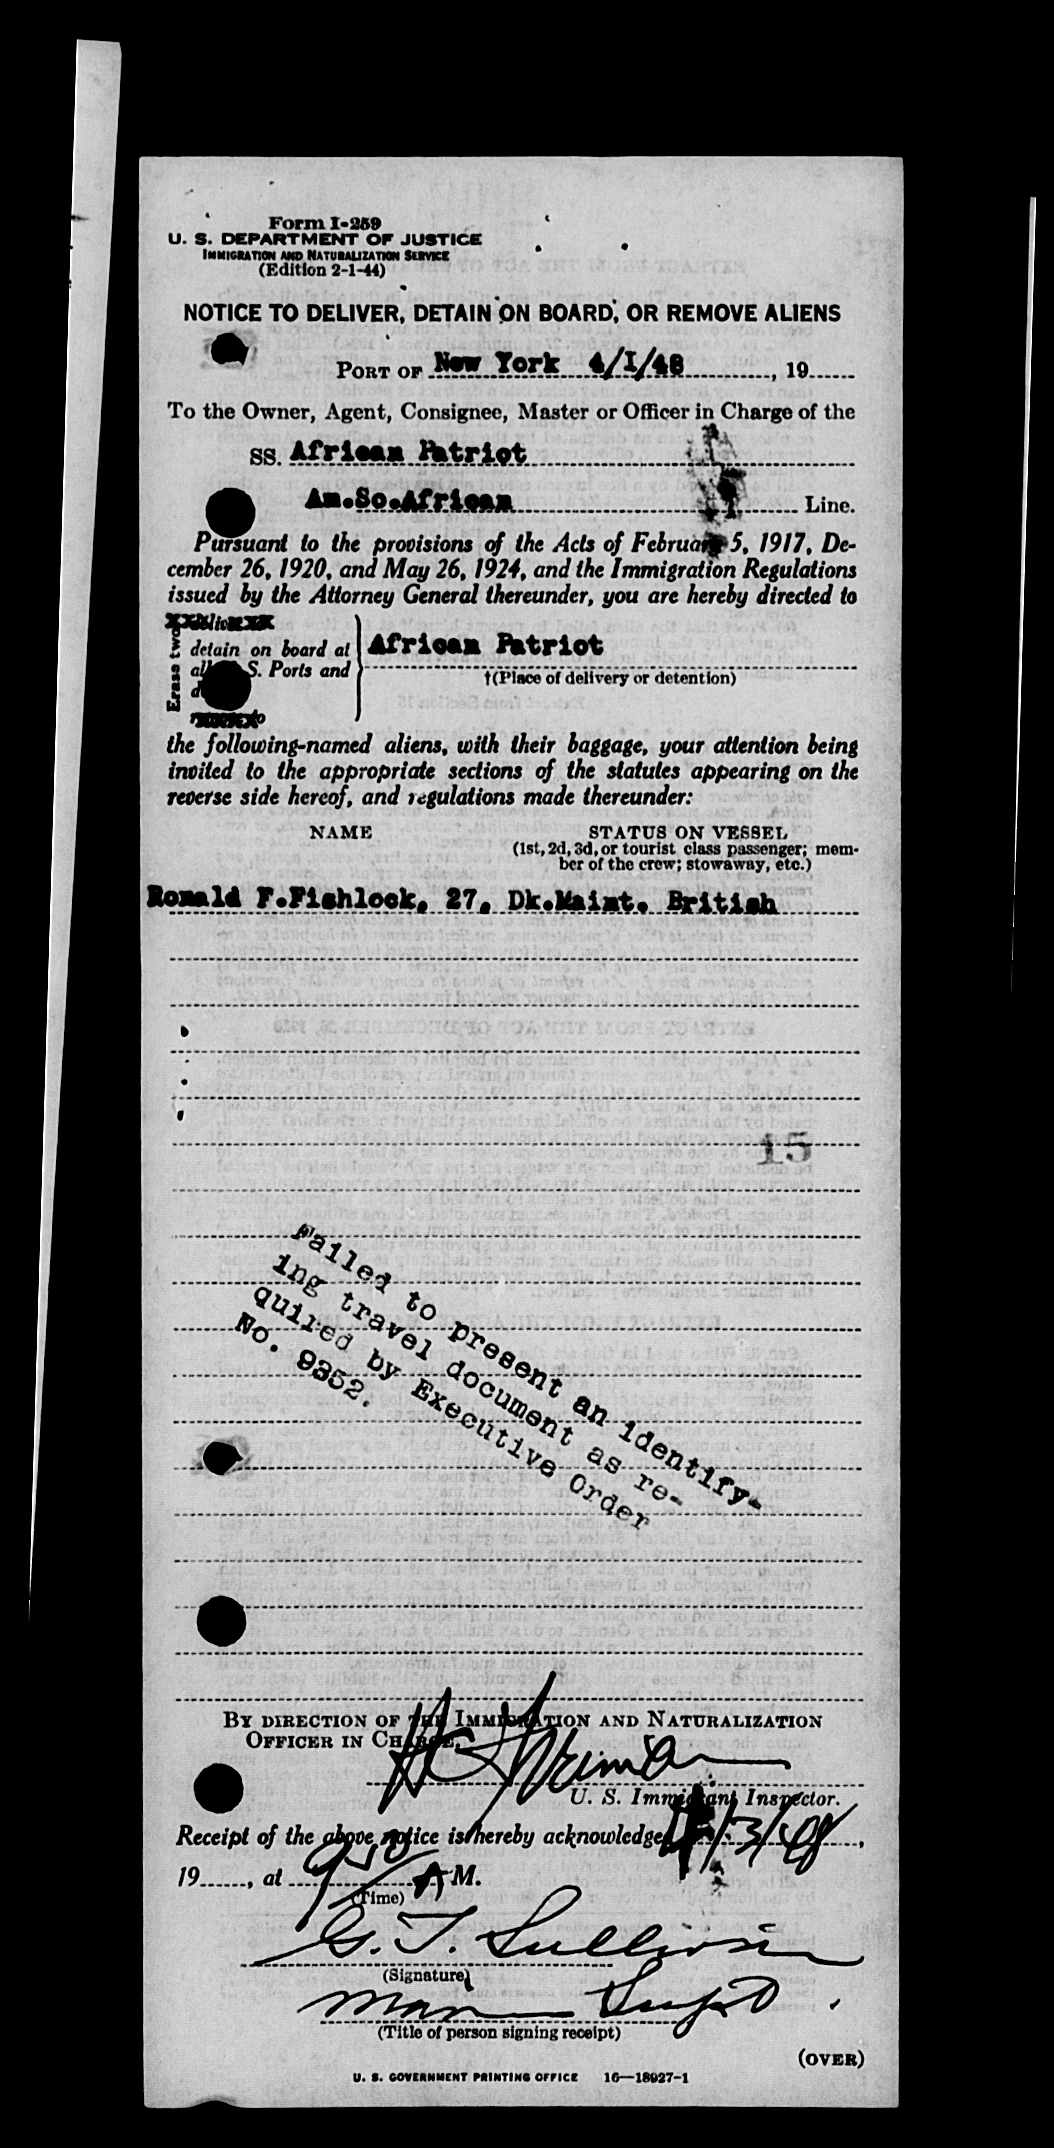 Form I-259
U. S. DEPARTMENT OF JUSTICE
IMMIGRATION AND NATURALIZATION SERVICE
(Edition 2-1-44)
NOTICE TO DELIVER, DETAIN ON BOARD, OR REMOVE ALIENS
PORT OF New York 4/1/48, 19
To the Owner, Agent, Consignee, Master or Officer in Charge of the
SS. African Patriot
Am.So.African Line.
Pursuant to the provisions of the Acts of February 5, 1917, De-
cember 26, 1920, and May 26, 1924, and the Immigration Regulations
issued by the Attorney General thereunder, you are hereby directed to
Erase two
detain on board at
all S. Ports and
African Patriot
†(Place of delivery or detention)
the following-named aliens, with their baggage, your attention being
invited to the appropriate sections of the statutes appearing on the
reverse side hereof, and regulations made thereunder:
NAME STATUS ON VESSEL
(1st, 2d, 3d, or tourist class passenger; mem-
ber of the crew; stowaway, etc.)
Ronald F.Fishlock, 27, Dk.Maint. British
15
Failed to present an identify-
ing travel document as re-
quired by Executive Order
No. 9352.
BY DIRECTION OF THE IMMIGRATION AND NATURALIZATION
OFFICER IN CHARGE,
U. S. Immigrant Inspector.
Receipt of the above notice is hereby acknowledged 4/3/48,
19, at 950 A M.
(Time)
G. T. Sullivan
(Signature)
Supt
(Title of person signing receipt)
(OVER)
U. S. GOVERNMENT PRINTING OFFICE 16—18927-1